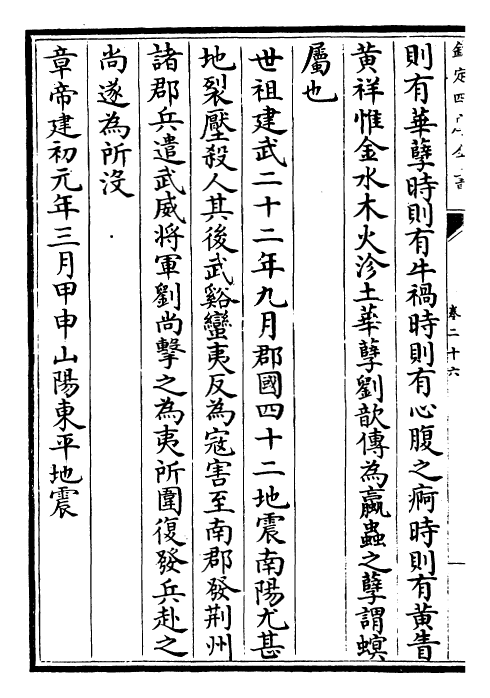 欽定四庫全書
卷二十六
則有華孽時則有牛禍時則有心腹之痾時則有黃眚
黃祥惟金水木火沴土華孽劉歆傳為蠃蟲之孽謂螟
屬也
世祖建武二十二年九月郡國四十二地震南陽尤甚
地裂壓殺人其後武谿蠻夷反為寇害至南郡發荆州
諸郡兵遣武威将軍劉尚擊之為夷所圍復發兵赴之
尚遂為所沒
章帝建初元年三月甲申山陽東平地震